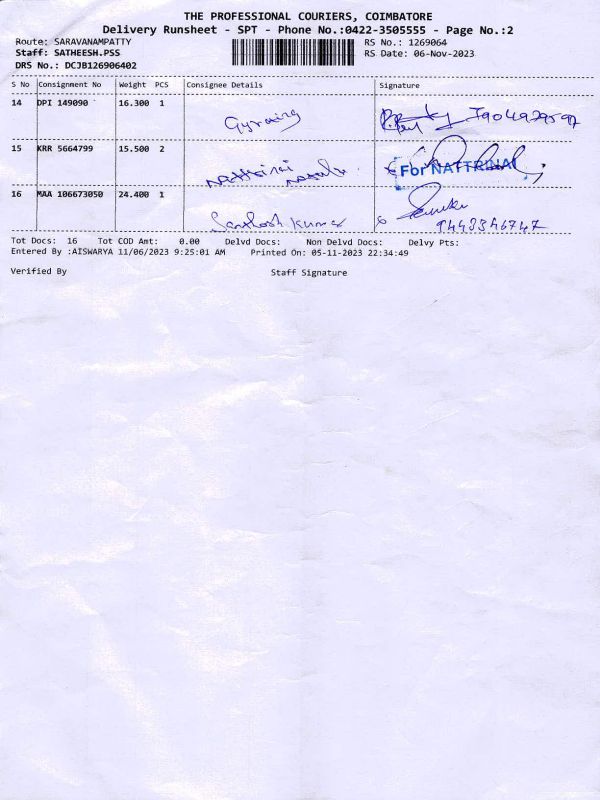 THE PROFESSIONAL COURIERS, COIMBATORE
Delivery Runsheet - SPT - Phone No.:0422-3505555 - Page No.:2
Route: SARAVANAMPATTY RS No.: 1269064
Staff: SATHEESH.PSS RS Date: 06-Nov-2023
DRS No.: DCJB126906402
S No Consignment No Weight PCS Consignee Details Signature
14 DPI 149090 16.300 1
15 KRR 5664799 15.500 2 For NATTRINAI
16 MAA 106673050 24.400 1 Santhosh Kumar
9443346747
Tot Docs: 16 Tot COD Amt: 0.00 Delvd Docs: Non Delvd Docs: Delvy Pts:
Entered By :AISWARYA 11/06/2023 9:25:01 AM Printed On: 05-11-2023 22:34:49
Verified By Staff Signature